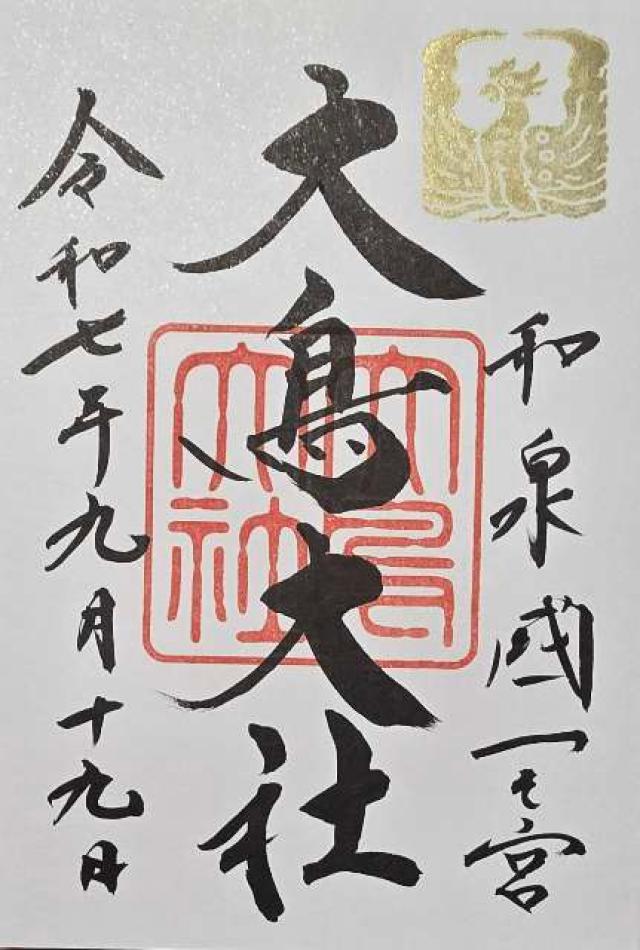 和泉國一之宮
大鳥大社
大鳥大社
令和七年九月十九日